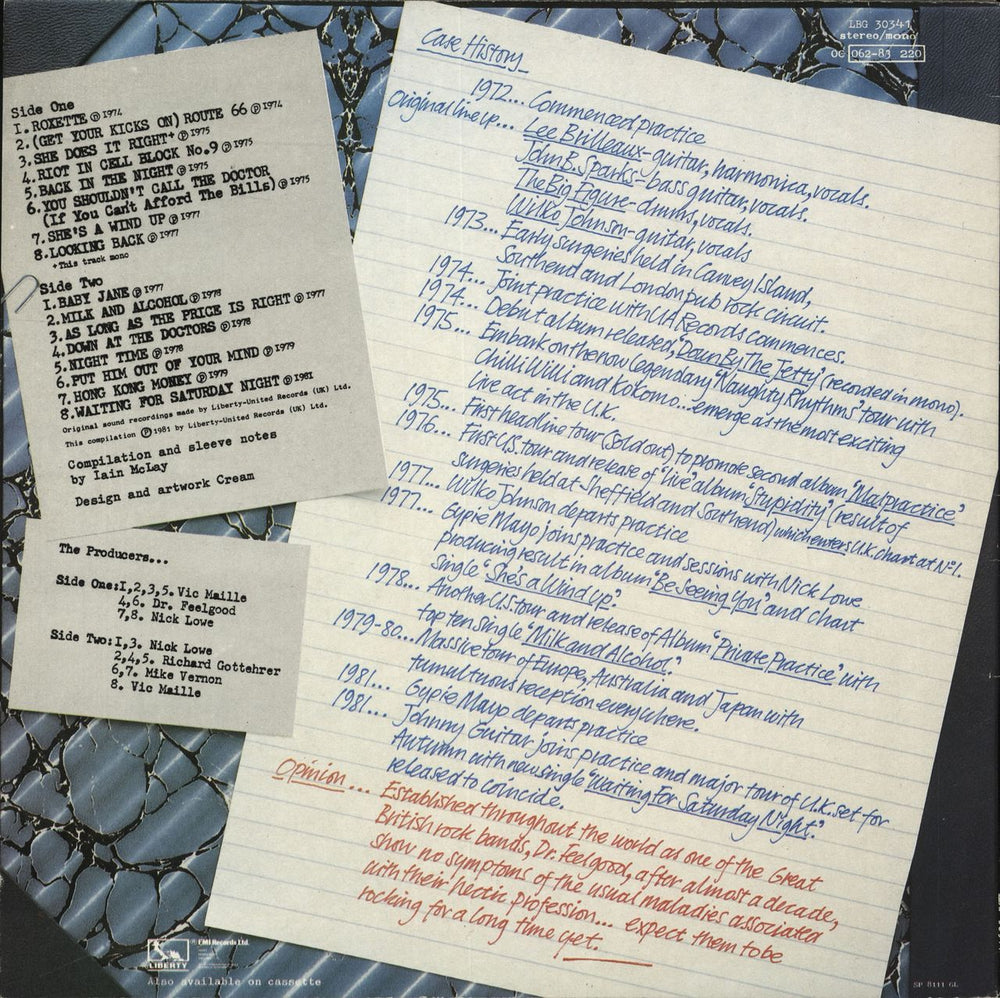 LBG 30341
stereo/mono
OC 062-83 220
Side One
1. ROXETTE Ⓟ 1974
2. (GET YOUR KICKS ON) ROUTE 66 Ⓟ 1974
3. SHE DOES IT RIGHT+ Ⓟ 1975
4. RIOT IN CELL BLOCK No.9 Ⓟ 1975
5. BACK IN THE NIGHT Ⓟ 1975
6. YOU SHOULDN'T CALL THE DOCTOR
(If You Can't Afford The Bills) Ⓟ 1975
7. SHE'S A WIND UP Ⓟ 1977
8. LOOKING BACK Ⓟ 1977
+This track mono
Side Two
1. BABY JANE Ⓟ 1977
2. MILK AND ALCOHOL Ⓟ 1978
3. AS LONG AS THE PRICE IS RIGHT Ⓟ 1977
4. DOWN AT THE DOCTORS Ⓟ 1978
5. NIGHT TIME Ⓟ 1978
6. PUT HIM OUT OF YOUR MIND Ⓟ 1979
7. HONG KONG MONEY Ⓟ 1979
8. WAITING FOR SATURDAY NIGHT Ⓟ 1981
Original sound recordings made by Liberty-United Records (UK) Ltd.
This compilation Ⓟ 1981 by Liberty-United Records (UK) Ltd.
Compilation and sleeve notes
by Iain McLay
Design and artwork Cream
The Producers...
Side One: 1,2,3,5. Vic Maille
4,6. Dr. Feelgood
7,8. Nick Lowe
Side Two: 1,3. Nick Lowe
2,4,5. Richard Gottehrer
6,7. Mike Vernon
8. Vic Maille
Case History
1972... Commenced practice
Original line up... Lee Brilleaux - guitar, harmonica, vocals.
John B. Sparks - bass guitar, vocals.
The Big Figure - drums, vocals.
Wilko Johnson - guitar, vocals
1973... Early surgeries held in Canvey Island,
Southend and London pub rock circuit.
1974... Joint practice with UA Records commences.
1974... Debut album released, "Down By The Jetty" (recorded in mono).
1975... Embark on the now legendary "Naughty Rhythms" tour with
Chilli Willi and Kokomo... emerge as the most exciting
live act in the U.K.
1975... First headline tour (sold out) to promote second album "Malpractice"
1976... First U.S. tour and release of "live" album "Stupidity" (result of
surgeries held at Sheffield and Southend) which enters U.K. chart at Nº1.
1977... Wilko Johnson departs practice
1977... Gypie Mayo joins practice and sessions with Nick Lowe
producing result in album "Be Seeing You" and chart
single "She's a Wind Up".
1978... Another U.S. tour and release of Album "Private Practice" with
top ten single "Milk and Alcohol."
1979-80... Massive tour of Europe, Australia and Japan with
tumultuous reception everywhere.
1981... Gypie Mayo departs practice
1981... Johnny Guitar joins practice and major tour of U.K. set for
Autumn with new single "Waiting For Saturday Night."
released to coincide.
Opinion... Established throughout the world as one of the Great
British rock bands, Dr. Feelgood, after almost a decade,
show no symptoms of the usual maladies associated
with their hectic profession... expect them to be
rocking for a long time yet.
LIBERTY
EMI Records Ltd.
Also available on cassette
SP 8111 GL